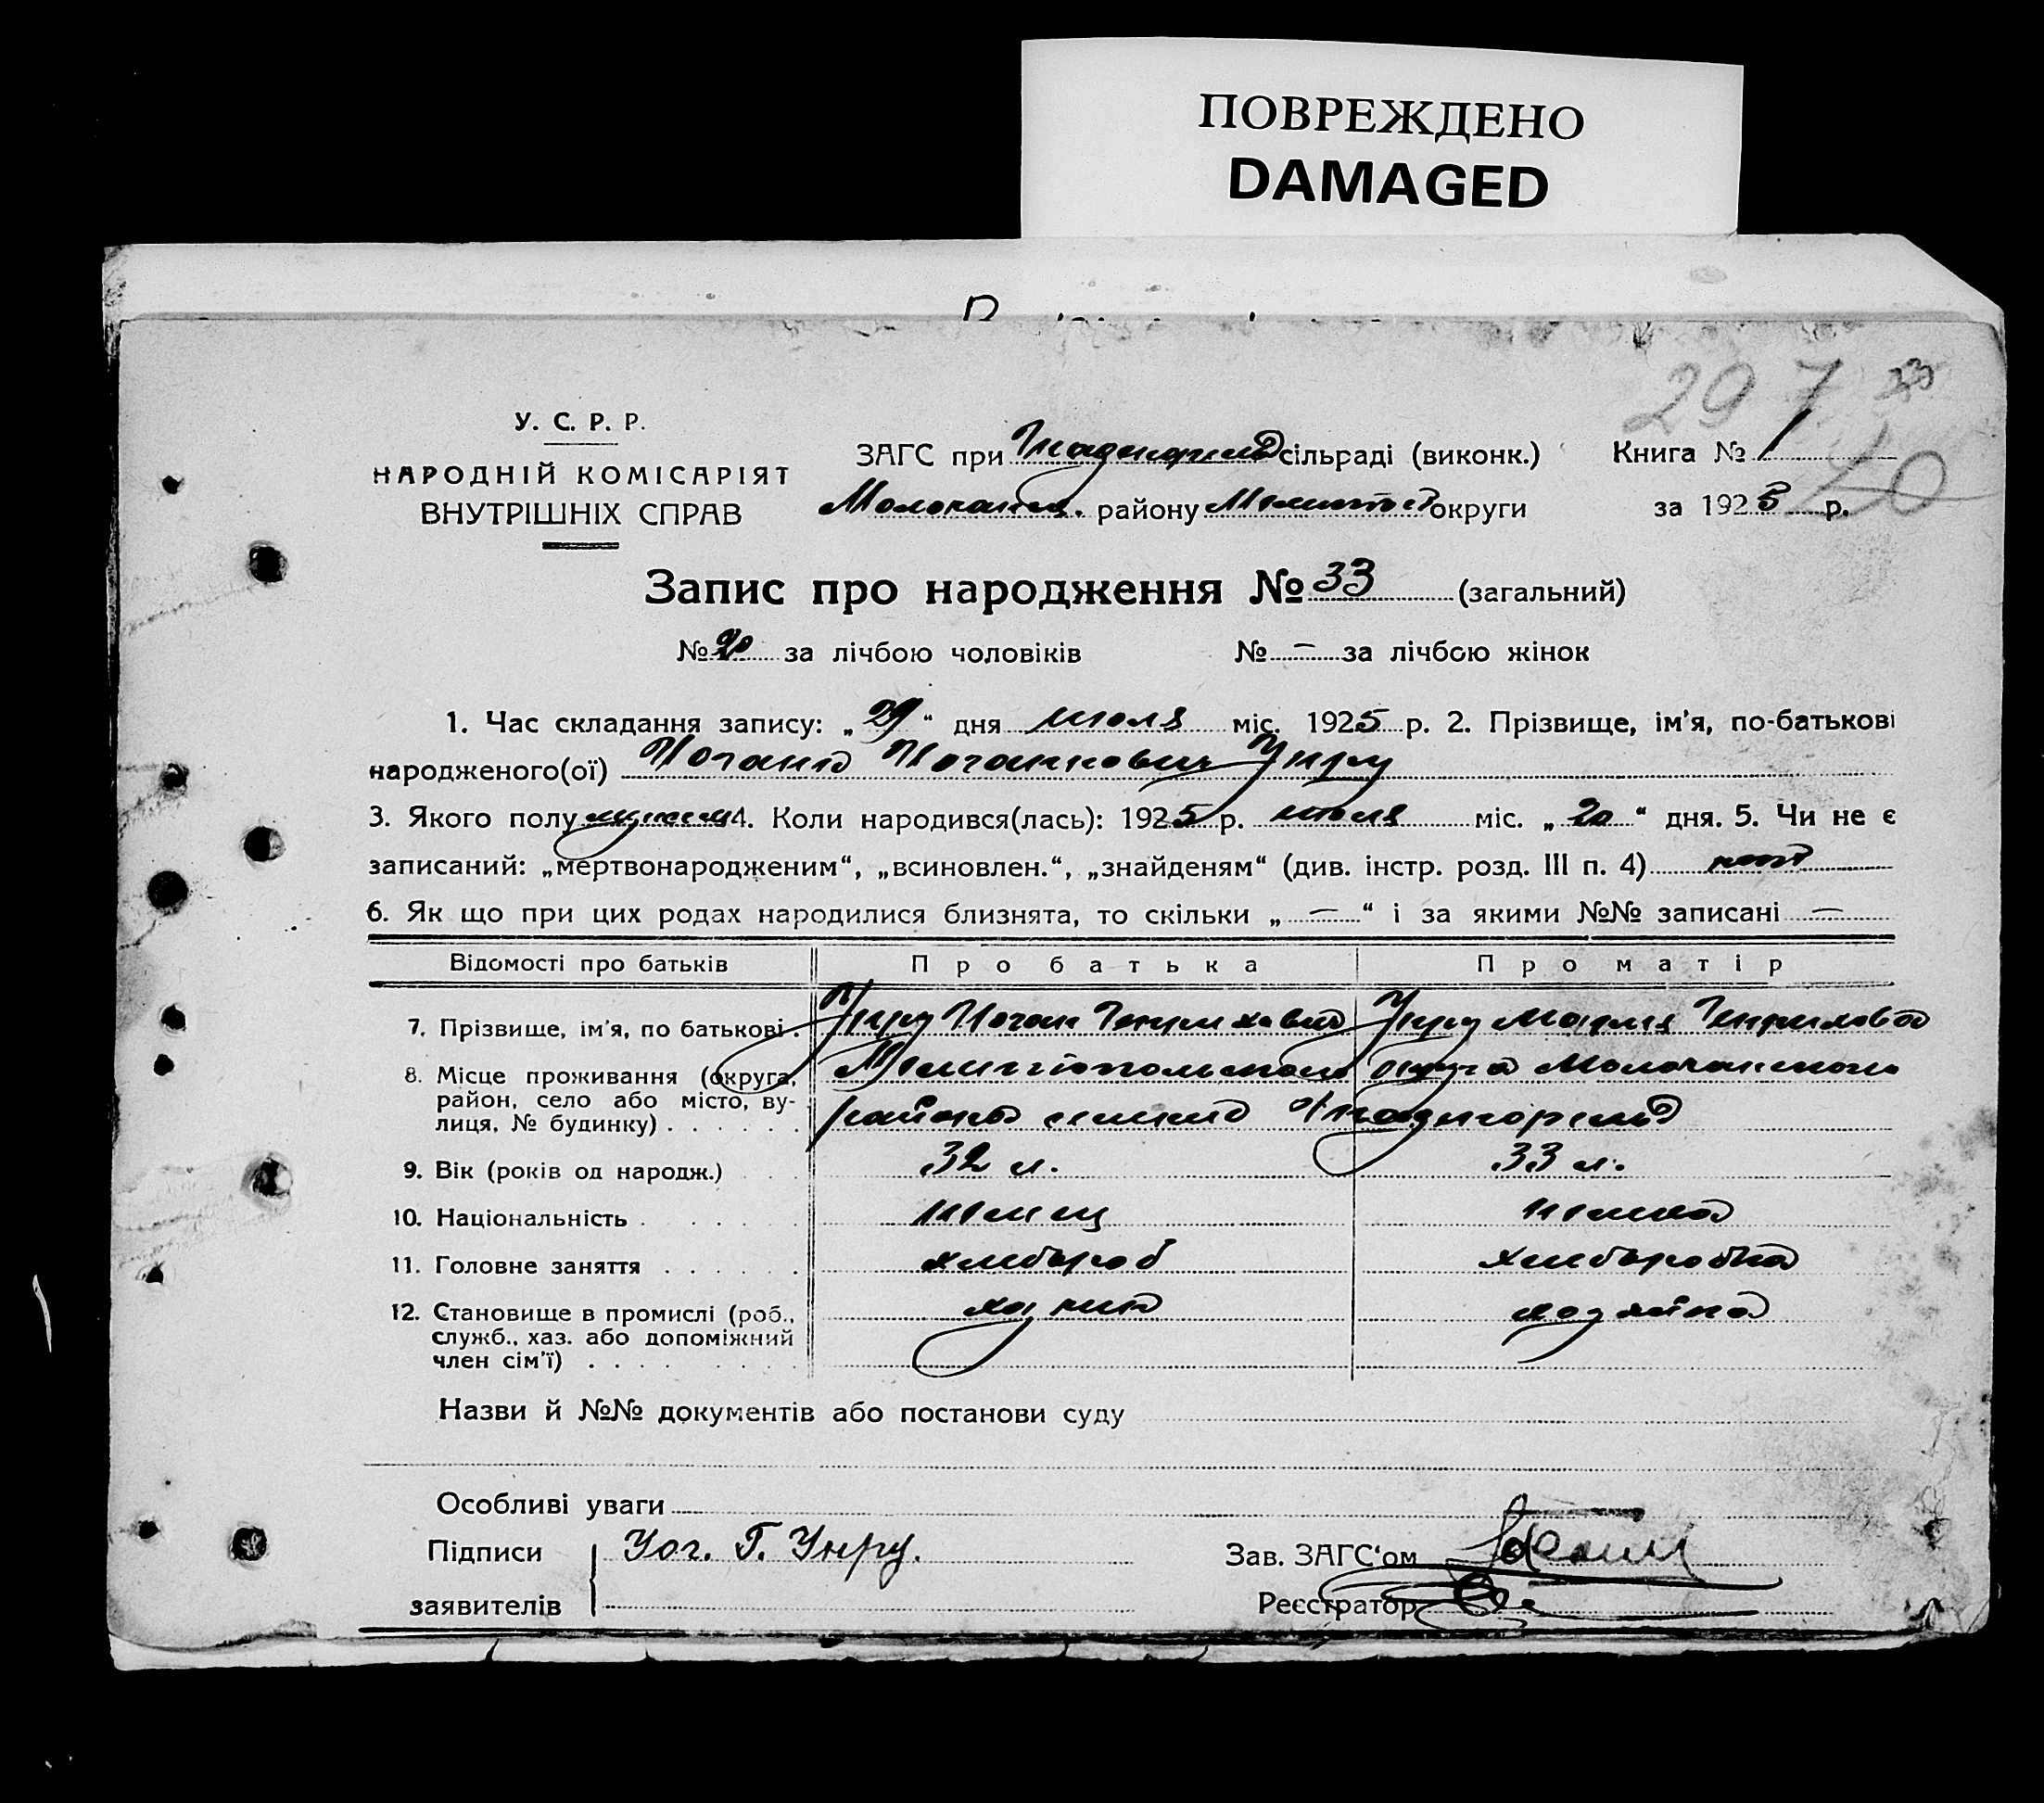 ПОВРЕЖДЕНО
DAMAGED
297 33
У. С. Р. Р.
НАРОДНІЙ КОМІСАРІЯТ
ВНУТРІШНІХ СПРАВ
ЗАГС при сільраді (виконк.)
Молочанск. району Мелитоп округи
Книга № 1
за 1925 р.
Запис про народження № 33 (загальний)
№ 20 за лічбою чоловіків № – за лічбою жінок
1. Час складання запису: „ 29 “ дня июля міс. 1925 р. 2. Прізвище, ім'я, по-батькові
народженого(ої) Иоганн Иоганнович Унру
3. Якого полу мужск 4. Коли народився(лась): 1925 р. июля міс. „ 20 “ дня. 5. Чи не є
записаний: „мертвонародженим“, „всиновлен.“, „знайденям“ (див. інстр. розд. III п. 4) нет
6. Як що при цих родах народилися близнята, то скільки „ – “ і за якими №№ записані –
Відомості про батьків Про батька Про матір
7. Прізвище, ім'я, по батькові . Унру Иоган Генрихович Унру Мария Генриховна
8. Місце проживання (округа, Мелитопольского округа Молочанского
район, село або місто, ву- района
лиця, № будинку) . . . . . .
9. Вік (років од народж.) . . . 32 л. 33 л.
10. Національність . . . . . . немец немка
11. Головне заняття . . . . . . хлебороб хлеборобка
12. Становище в промислі (роб., хозяин хозяйка
служб., хаз. або допоміжний
член сім'ї) . . . . . . . .
Назви й №№ документів або постанови суду
Особливі уваги
Підписи Иог. Г. Унру. Зав. ЗАГС‘ом
заявителів Реєстратор